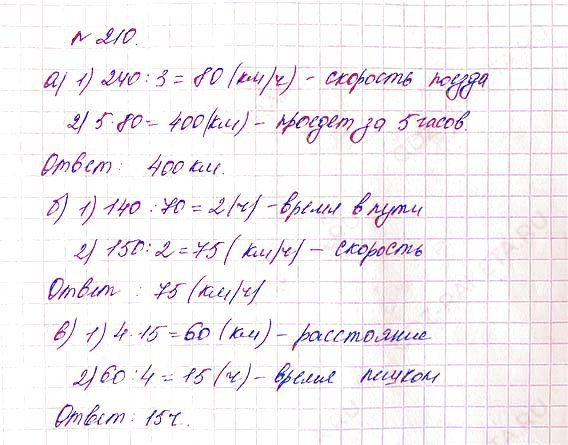 № 210.
а) 1) 240 : 3 = 80 (км/ч) - скорость поезда
2) 5 · 80 = 400 (км) - проедет за 5 часов.
Ответ: 400 км.
б) 1) 140 : 70 = 2 (ч) - время в пути
2) 150 : 2 = 75 (км/ч) - скорость
Ответ : 75 (км/ч)
в) 1) 4 · 15 = 60 (км) - расстояние
2) 60 : 4 = 15 (ч) - время пешком
Ответ: 15 ч.